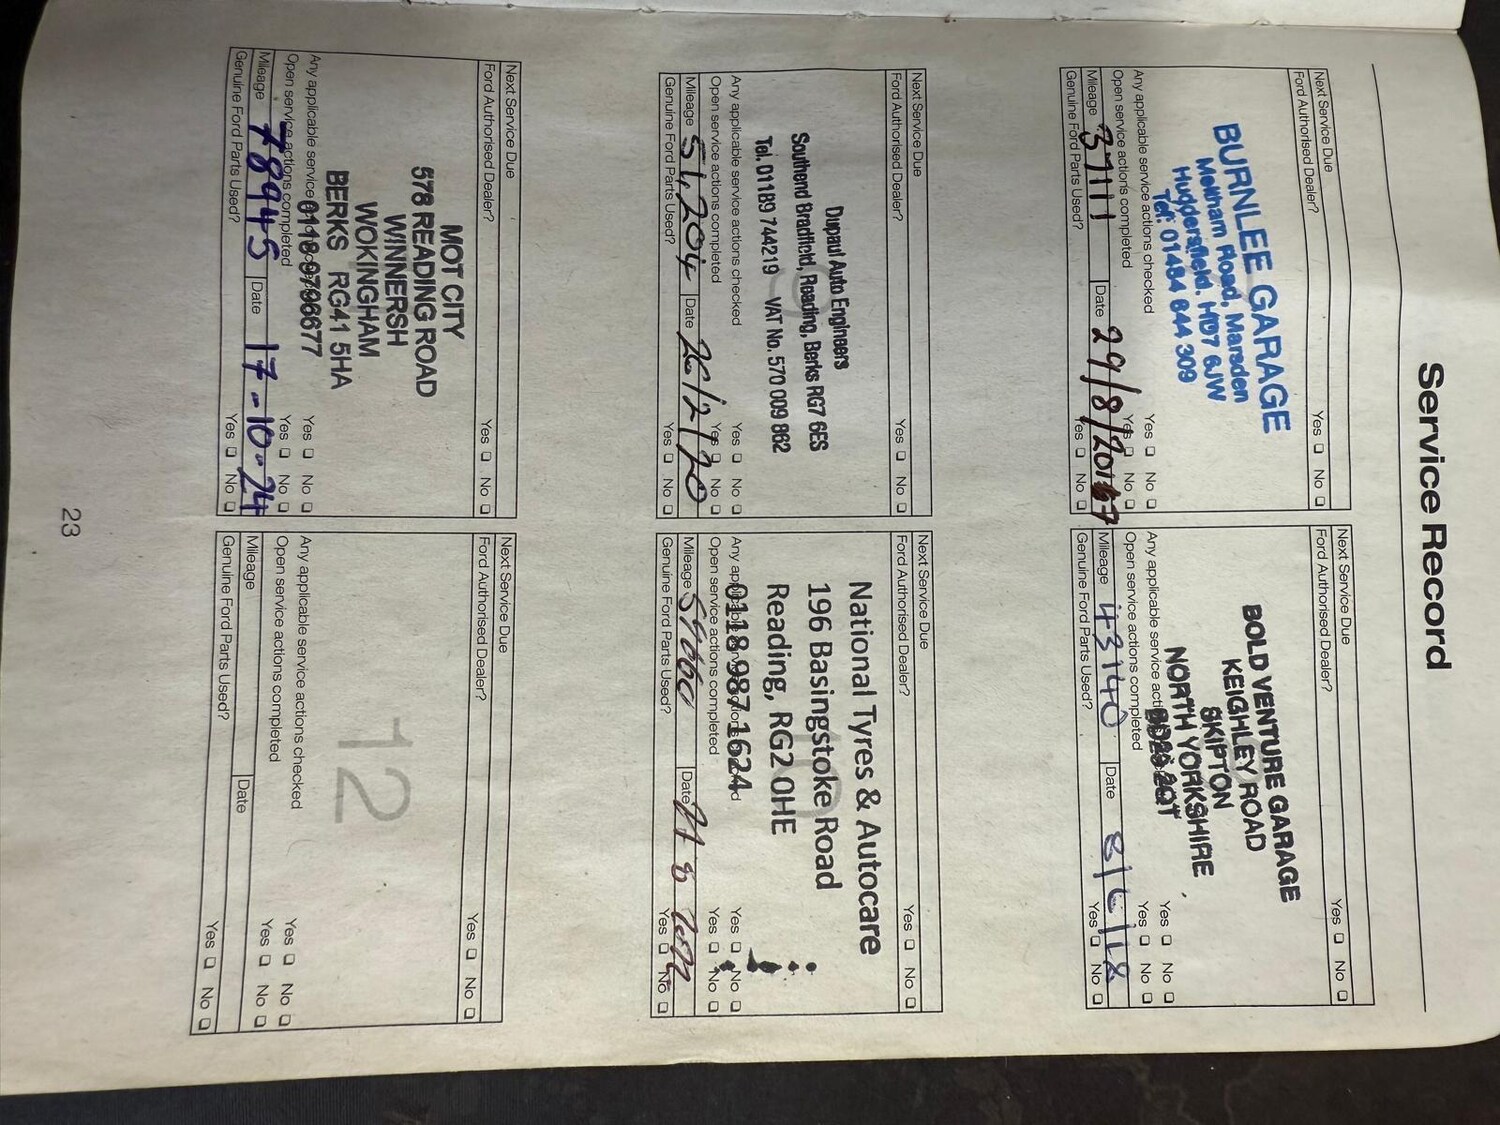 Service Record
Next Service Due
Ford Authorised Dealer? Yes No
BURNLEE GARAGE
Meltham Road, Marsden
Huddersfield. HD7 6JW
Tel: 01484 844 309
Any applicable service actions checked Yes No
Open service actions completed Yes No
Mileage 37111 Date 29/8/2017
Genuine Ford Parts Used? Yes No
Next Service Due
Ford Authorised Dealer? Yes No
BOLD VENTURE GARAGE
KEIGHLEY ROAD
SKIPTON
NORTH YORKSHIRE
Any applicable service Yes No
Open service actions completed Yes No
Mileage 43140 Date 8/6/18
Genuine Ford Parts Used? Yes No
Next Service Due
Ford Authorised Dealer? Yes No
9
Dupaul Auto Engineers
Southend Bradfield, Reading, Berks RG7 6ES
Tel. 01189 744219 VAT No. 570 009 862
Any applicable service actions checked Yes No
Open service actions completed Yes No
Mileage 51,204 Date 26/2/20
Genuine Ford Parts Used? Yes No
Next Service Due
Ford Authorised Dealer? Yes No
10
National Tyres & Autocare
196 Basingstoke Road
Reading, RG2 0HE
0118 987 1624
Any applicable service actions checked Yes No
Open service actions completed Yes No
Mileage Date
Genuine Ford Parts Used? Yes No
Next Service Due
Ford Authorised Dealer? Yes No
MOT CITY
578 READING ROAD
WINNERSH
WOKINGHAM
BERKS RG41 5HA
0118 9796677
Any applicable service actions checked Yes No
Open service actions completed Yes No
Mileage 78945 Date 17-10-24
Genuine Ford Parts Used? Yes No
Next Service Due
Ford Authorised Dealer? Yes No
12
Any applicable service actions checked Yes No
Open service actions completed Yes No
Mileage Date
Genuine Ford Parts Used? Yes No
23